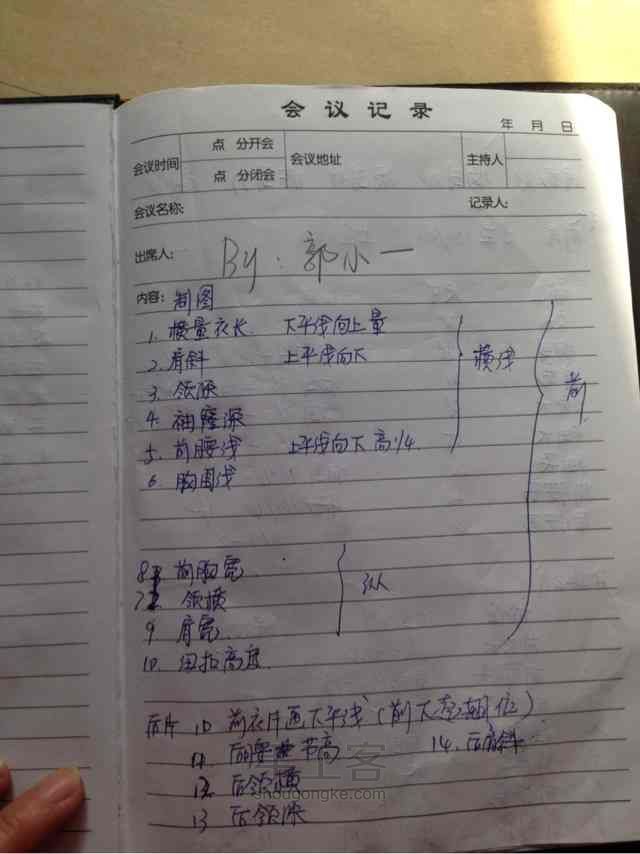 会议记录
年 月 日
会议时间 点 分开会 会议地址 主持人
点 分闭会
会议名称: 记录人:
出席人: By:郭小一
内容: 制图
1. 横量衣长 下平线向上量
2. 肩斜 上平线向下 横线
3. 领深 前
4. 袖窿深
5. 前腰线 上平线向下 高1/4
6. 胸围线
8 前胸宽
7 领横 纵
9 肩宽
10. 纽扣高度
后片 10 前衣片画下平线
11. 后腰节高 14. 后肩斜
12. 后领横
13 后领深
手工客
shougongke.com